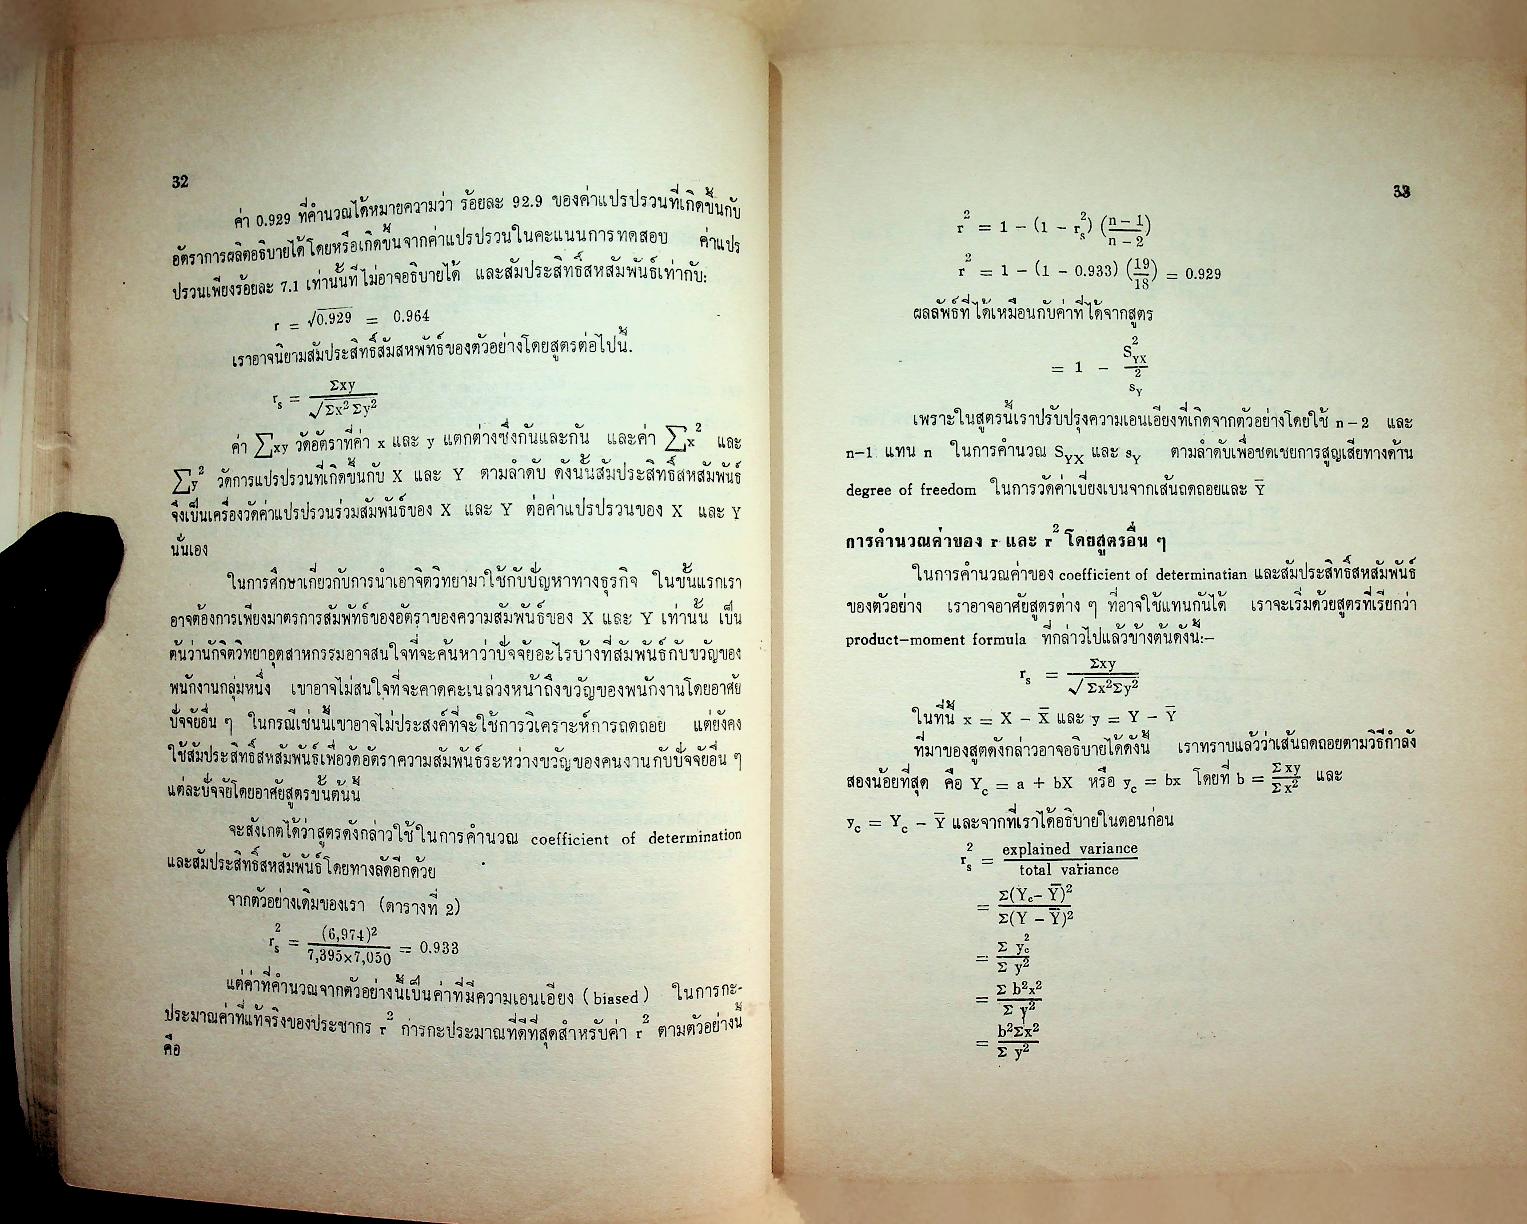 32
ค่า 0.929 ที่คำนวณได้หมายความว่า ร้อยละ 92.9 ของค่าแปรปรวนที่เกิดขึ้นกับ
อัตราการผลิตอธิบายได้โดยหรือเกิดขึ้นจากค่าแปรปรวนในคะแนนการทดสอบ ค่าแปร
ปรวนเพียงร้อยละ 7.1 เท่านั้นที่ไม่อาจอธิบายได้ และสัมประสิทธิ์สหสัมพันธ์เท่ากับ:
r = √0.929 = 0.964
เราอาจนิยามสัมประสิทธิ์สัมสหพัทธ์ของตัวอย่างโดยสูตรต่อไปนี้.
r_s = Σxy / √Σx² Σy²
ค่า ∑xy วัดอัตราที่ค่า x และ y แตกต่างซึ่งกันและกัน และค่า ∑x² และ
∑y² วัดการแปรปรวนที่เกิดขึ้นกับ X และ Y ตามลำดับ ดังนั้นสัมประสิทธิ์สหสัมพันธ์
จึงเป็นเครื่องวัดค่าแปรปรวนร่วมสัมพันธ์ของ X และ Y ต่อค่าแปรปรวนของ X และ Y
นั่นเอง
ในการศึกษาเกี่ยวกับการนำเอาจิตวิทยามาใช้กับปัญหาทางธุรกิจ ในขั้นแรกเรา
อาจต้องการเพียงมาตรการสัมพัทธ์ของอัตราของความสัมพันธ์ของ X และ Y เท่านั้น เป็น
ต้นว่านักจิตวิทยาอุตสาหกรรมอาจสนใจที่จะค้นหาว่าปัจจัยอะไรบ้างที่สัมพันธ์กับขวัญของ
พนักงานกลุ่มหนึ่ง เขาอาจไม่สนใจที่จะคาดคะเนล่วงหน้าถึงขวัญของพนักงานโดยอาศัย
ปัจจัยอื่น ๆ ในกรณีเช่นนี้เขาอาจไม่ประสงค์ที่จะใช้การวิเคราะห์การถดถอย แต่ยังคง
ใช้สัมประสิทธิ์สหสัมพันธ์เพื่อวัดอัตราความสัมพันธ์ระหว่างขวัญของคนงานกับปัจจัยอื่น ๆ
แต่ละปัจจัยโดยอาศัยสูตรขั้นต้นนี้
จะสังเกตได้ว่าสูตรดังกล่าวใช้ในการคำนวณ coefficient of determination
และสัมประสิทธิ์สหสัมพันธ์โดยทางลัดอีกด้วย
จากตัวอย่างเดิมของเรา (ตารางที่ 2)
r_s² = (6,974)² / 7,395×7,050 = 0.933
แต่ค่าที่คำนวณจากตัวอย่างนี้เป็นค่าที่มีความเอนเอียง (biased) ในการกะ-
ประมาณค่าที่แท้จริงของประชากร r² การกะประมาณที่ดีที่สุดสำหรับค่า r² ตามตัวอย่างนี้
คือ
33
r² = 1 − (1 − r_s²) (n−1 / n−2)
r² = 1 − (1 − 0.933) (19/18) = 0.929
ผลลัพธ์ที่ได้เหมือนกับค่าที่ได้จากสูตร
= 1 − S_YX² / s_Y²
เพราะในสูตรนี้เราปรับปรุงความเอนเอียงที่เกิดจากตัวอย่างโดยใช้ n−2 และ
n−1 แทน n ในการคำนวณ S_YX และ s_Y ตามลำดับเพื่อชดเชยการสูญเสียทางด้าน
degree of freedom ในการวัดค่าเบี่ยงเบนจากเส้นถดถอยและ Ȳ
การคำนวณค่าของ r และ r² โดยสูตรอื่น ๆ
ในการคำนวณค่าของ coefficient of determinatian และสัมประสิทธิ์สหสัมพันธ์
ของตัวอย่าง เราอาจอาศัยสูตรต่าง ๆ ที่อาจใช้แทนกันได้ เราจะเริ่มด้วยสูตรที่เรียกว่า
product-moment formula ที่กล่าวไปแล้วข้างต้นดังนี้:−
r_s = Σxy / √Σx²Σy²
ในที่นี้ x = X − X̄ และ y = Y − Ȳ
ที่มาของสูตดังกล่าวอาจอธิบายได้ดังนี้ เราทราบแล้วว่าเส้นถดถอยตามวิธีกำลัง
สองน้อยที่สุด คือ Y_c = a + bX หรือ y_c = bx โดยที่ b = Σxy / Σx² และ
y_c = Y_c − Ȳ และจากที่เราได้อธิบายในตอนก่อน
r_s² = explained variance / total variance
= Σ(Y_c − Ȳ)² / Σ(Y − Ȳ)²
= Σ y_c² / Σ y²
= Σ b²x² / Σ y²
= b²Σx² / Σ y²